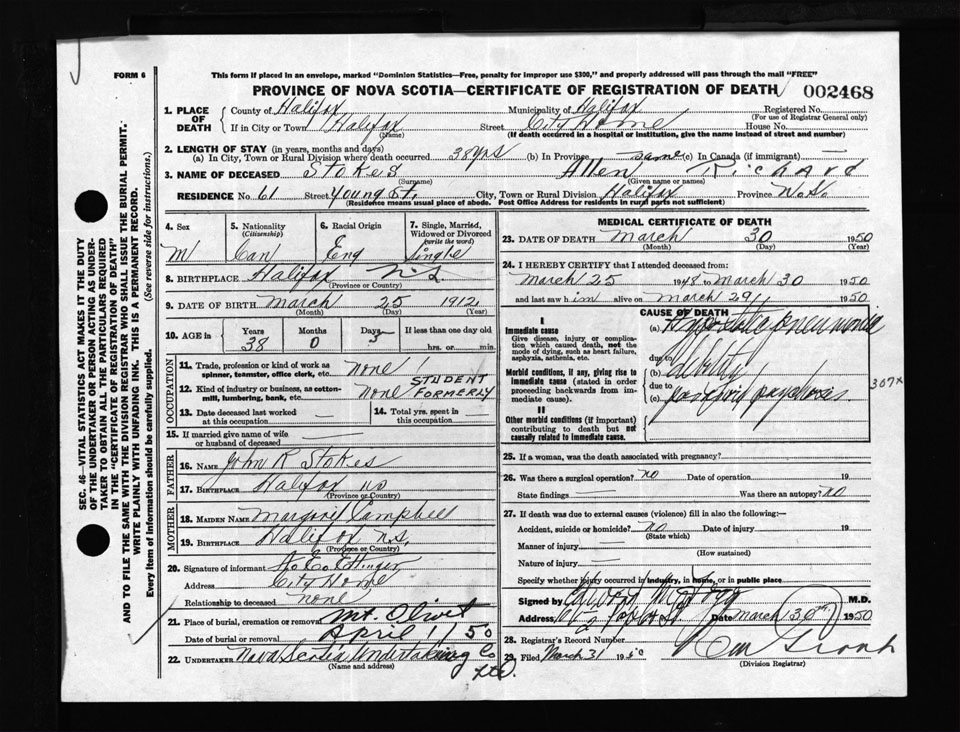 FORM 6
This form if placed in an envelope, marked "Dominion Statistics—Free, penalty for improper use $300," and properly addressed will pass through the mail "FREE"
PROVINCE OF NOVA SCOTIA—CERTIFICATE OF REGISTRATION OF DEATH 002468
1. PLACE OF DEATH { County of Halifax Municipality of Halifax Registered No.
(For use of Registrar General only)
If in City or Town Halifax Street City Home House No.
(Name) (If death occurred in a hospital or institution, give the name instead of street and number)
2. LENGTH OF STAY (in years, months and days)
(a) In City, Town or Rural Division where death occurred 38 yrs (b) In Province same (c) In Canada (if immigrant) —
3. NAME OF DECEASED Stokes Allen Richard
(Surname) (Given name or names)
RESIDENCE No. 61 Street Young St. City, Town or Rural Division Halifax Province N.S.
(Residence means usual place of abode. Post Office Address for residents in rural parts not sufficient)
SEC. 46—VITAL STATISTICS ACT MAKES IT THE DUTY
OF THE UNDERTAKER OR PERSON ACTING AS UNDER-
TAKER TO OBTAIN ALL THE PARTICULARS REQUIRED
IN THE "CERTIFICATE OF REGISTRATION OF DEATH"
AND TO FILE THE SAME WITH THE DIVISION REGISTRAR WHO SHALL ISSUE THE BURIAL PERMIT.
WRITE PLAINLY WITH UNFADING INK. THIS IS A PERMANENT RECORD.
Every item of information should be carefully supplied. (See reverse side for instructions.)
4. Sex 5. Nationality (Citizenship) 6. Racial Origin 7. Single, Married, Widowed or Divorced (write the word)
M Can Eng Single
8. BIRTHPLACE Halifax N.S.
(Province or Country)
9. DATE OF BIRTH March 25 1912
(Month) (Day) (Year)
10. AGE in Years Months Days If less than one day old
38 0 hrs. or min.
OCCUPATION
11. Trade, profession or kind of work as spinner, teamster, office clerk, etc. none
12. Kind of industry or business, as cotton-mill, lumbering, bank, etc. None STUDENT FORMERLY
13. Date deceased last worked at this occupation — 14. Total yrs. spent in this occupation
15. If married give name of wife or husband of deceased —
FATHER
16. NAME John R Stokes
17. BIRTHPLACE Halifax
(Province or Country)
MOTHER
18. MAIDEN NAME Campbell
19. BIRTHPLACE Halifax N.S.
(Province or Country)
20. Signature of informant Ettinger
Address City Home
Relationship to deceased none
21. Place of burial, cremation or removal Mt. Olivet
Date of burial or removal April 1/50
22. UNDERTAKER Nova Scotia Undertaking Co
(Name and address) Ltd.
MEDICAL CERTIFICATE OF DEATH
23. DATE OF DEATH March 30 1950
(Month) (Day) (Year)
24. I HEREBY CERTIFY that I attended deceased from:
March 25 1948 to March 30 1950
and last saw him alive on March 29 1950
CAUSE OF DEATH
I
Immediate cause
Give disease, injury or complication which caused death, not the mode of dying, such as heart failure, asphyxia, asthenia, etc.
(a) Hypostatic pneumonia
due to
Morbid conditions, if any, giving rise to immediate cause (stated in order proceeding backwards from immediate cause).
(b) debility
due to
(c) psychosis 307X
II
Other morbid conditions (if important) contributing to death but not causally related to immediate cause.
25. If a woman, was the death associated with pregnancy?
26. Was there a surgical operation? no Date of operation 19
State findings — Was there an autopsy? no
27. If death was due to external causes (violence) fill in also the following:—
Accident, suicide or homicide? no Date of injury 19
(State which)
Manner of injury —
(How sustained)
Nature of injury —
Specify whether injury occurred in industry, in home, or in public place
Signed by M.D.
Address Date March 30th 1950
28. Registrar's Record Number
29. Filed March 31 1950
(Division Registrar)